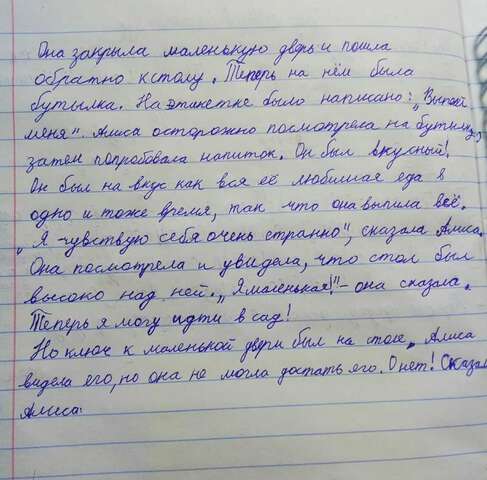 Она закрыла маленькую дверь и пошла
обратно к столу. Теперь на нём была
бутылка. На этикетке было написано: "Выпей
меня". Алиса осторожно посмотрела на бутылку,
затем попробовала напиток. Он был вкусный!
Он был на вкус как вся её любимая еда в
одно и тоже время, так что она выпила всё.
"Я чувствую себя очень странно", сказала Алиса.
Она посмотрела и увидела, что стол был
высоко над ней. "Я маленькая!" - она сказала.
Теперь я могу идти в сад!
Но ключ к маленькой двери был на столе. Алиса
видела его, но она не могла достать его. О нет! Сказала
Алиса.